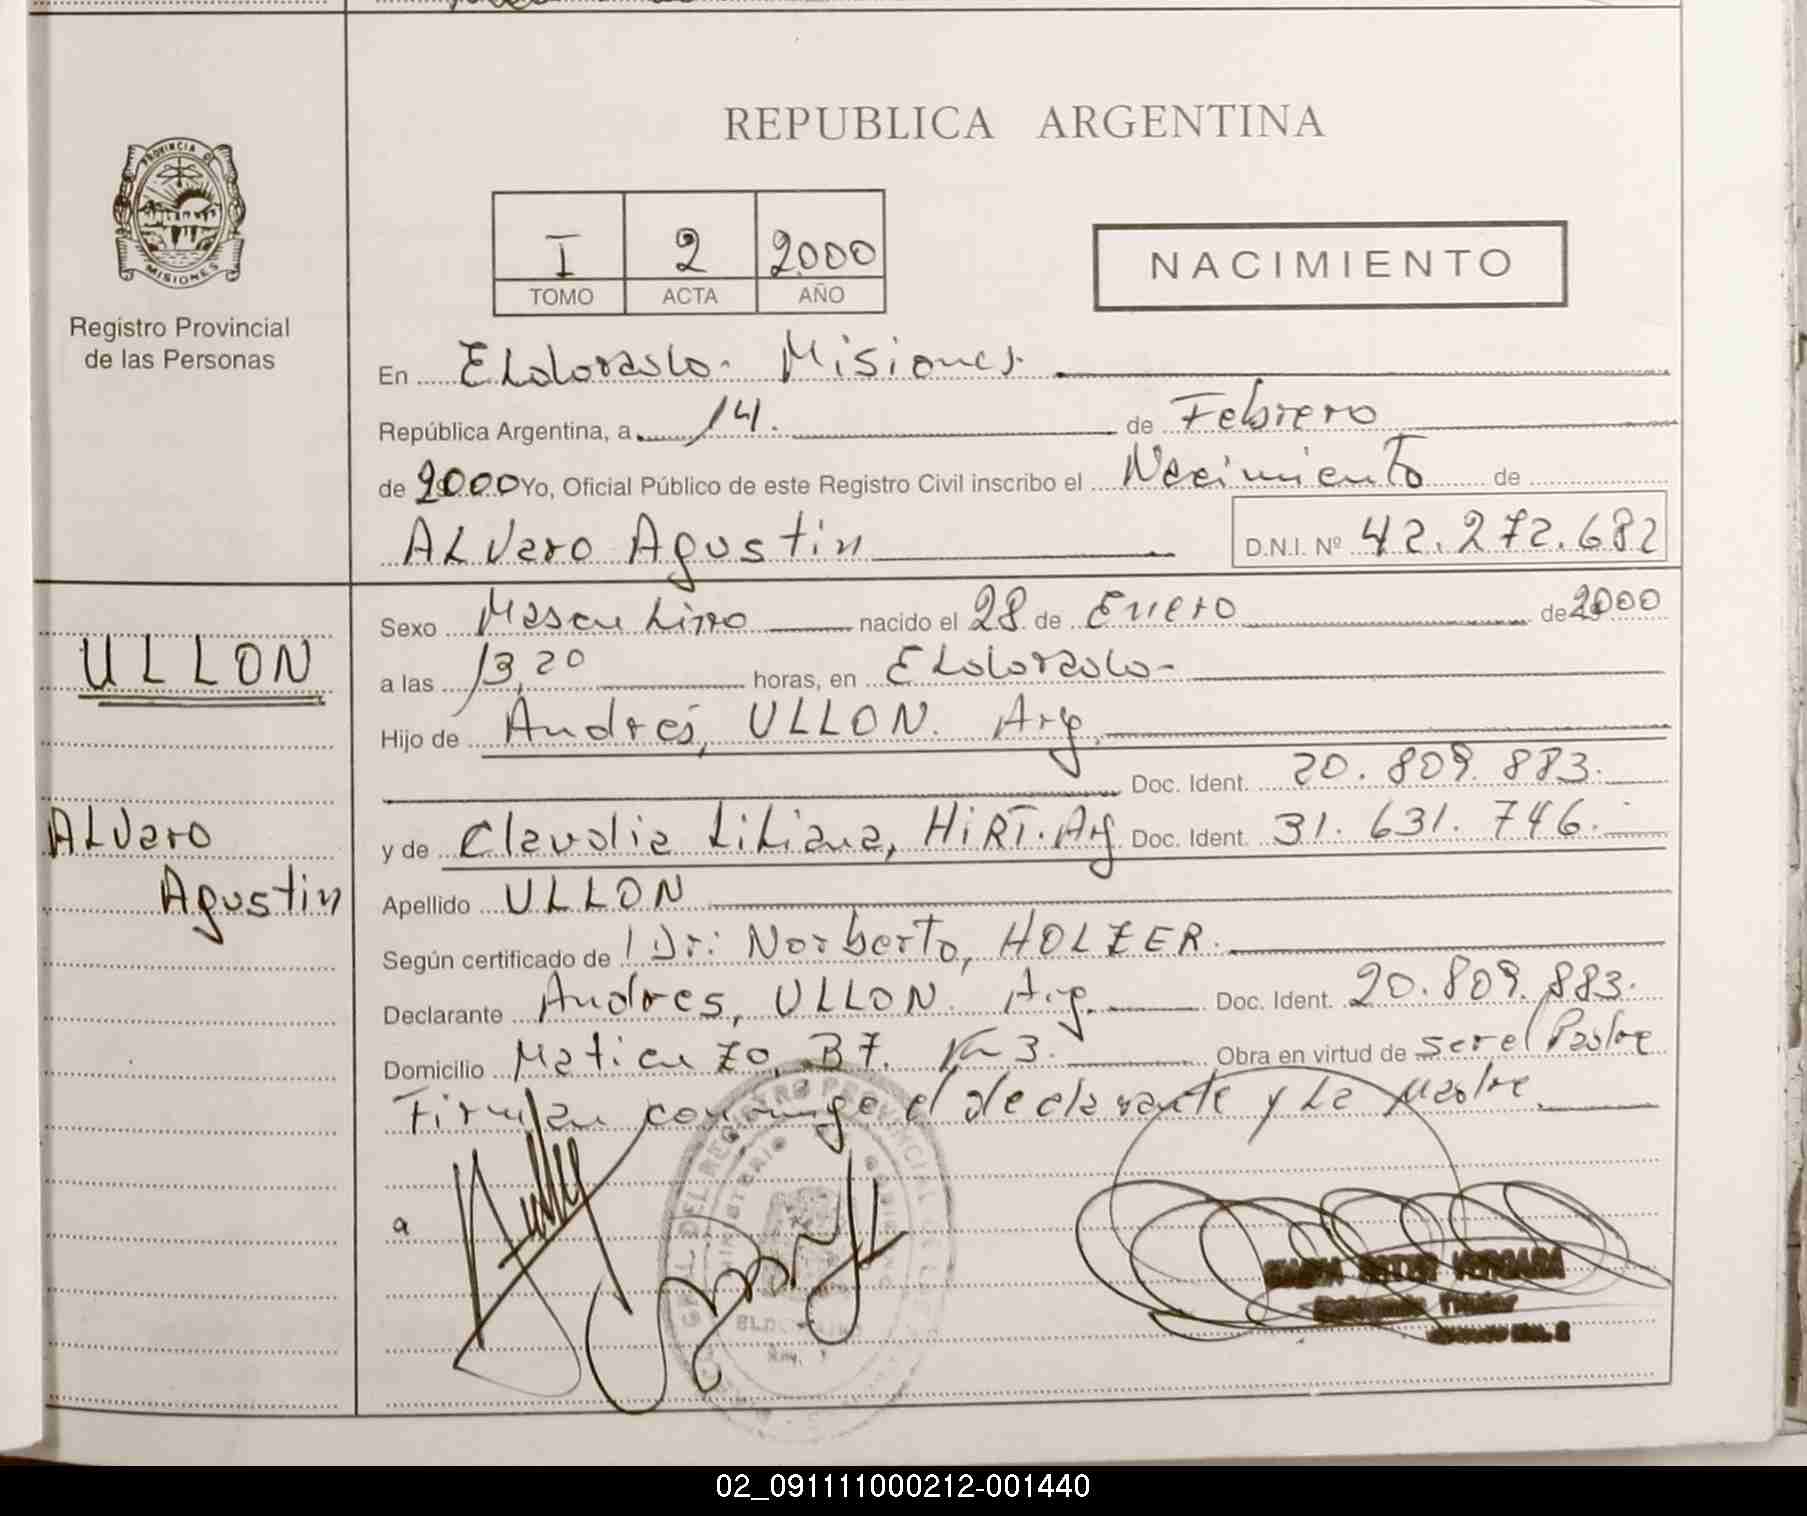 REPUBLICA ARGENTINA
PROVINCIA DE
MISIONES
Registro Provincial
de las Personas
I 2 2000
TOMO ACTA AÑO
NACIMIENTO
En Eldorado. Misiones.
República Argentina, a 14. de Febrero
de 2000 Yo, Oficial Público de este Registro Civil inscribo el Nacimiento de
Alvaro Agustin D.N.I. Nº 42.272.682
ULLON
Alvaro
Agustin
Sexo Masculino nacido el 28 de Enero de 2000
a las 13,20 horas, en Eldorado-
Hijo de Andrés, ULLON. Arg.
Doc. Ident. 20.809.883.
y de Claudia Liliana, HIRT. Arg Doc. Ident. 31.631.746.
Apellido ULLON
Según certificado de Dr: Norberto, HOLZER.
Declarante Andres, ULLON. Arg. Doc. Ident. 20.809.883.
Domicilio Matienzo, B7. Km 3. Obra en virtud de ser el Padre
Firman conmigo el declarante y la Madre.
VERGARA
02_091111000212-001440